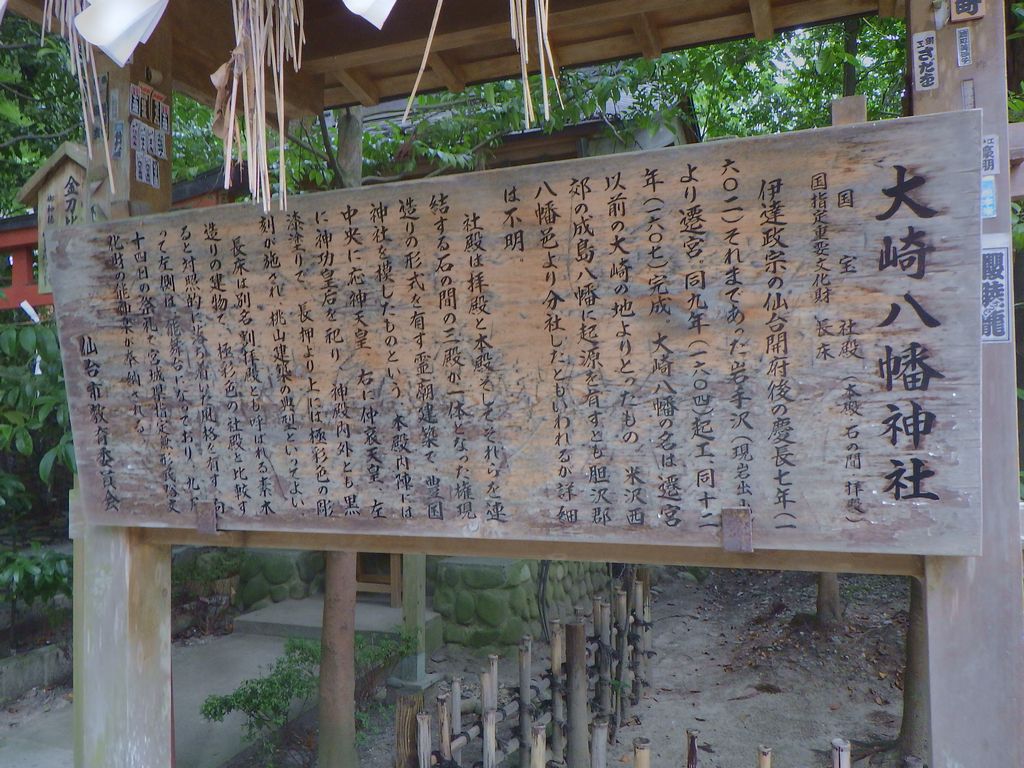 大崎八幡神社
国宝 社殿(本殿 石の間 拝殿)
国指定重要文化財 長床
伊達政宗の仙台開府後の慶長七年(一
六〇二)それまであった岩手沢(現岩出山)
より遷宮、同九年(一六〇四)起工、同十二
年(一六〇七)完成。大崎八幡の名は、遷宮
以前の大崎の地よりとったもの。米沢西
郊の成島八幡に起源を有すとも胆沢郡
八幡邑より分社したともいわれるが詳細
は不明。
社殿は拝殿と本殿そしてそれらを連
結する石の間の三殿が一体となった権現
造りの形式を有す霊廟建築で、豊国
神社を模したものという。本殿内陣には
中央に応神天皇、右に仲哀天皇、左
に神功皇后を祀り、神殿内外とも黒
漆塗りで、長押より上には極彩色の彫
刻が施され、桃山建築の典型といってよい。
長床は別名割拝殿とも呼ばれる素木
造りの建物で、極彩色の社殿と比較す
ると対照的に落ち着いた風格を有す。向
って左側は、能舞台になっており、九月
十四日の祭礼で宮城県指定無形民俗文
化財の能神楽が奉納される。
仙台市教育委員会